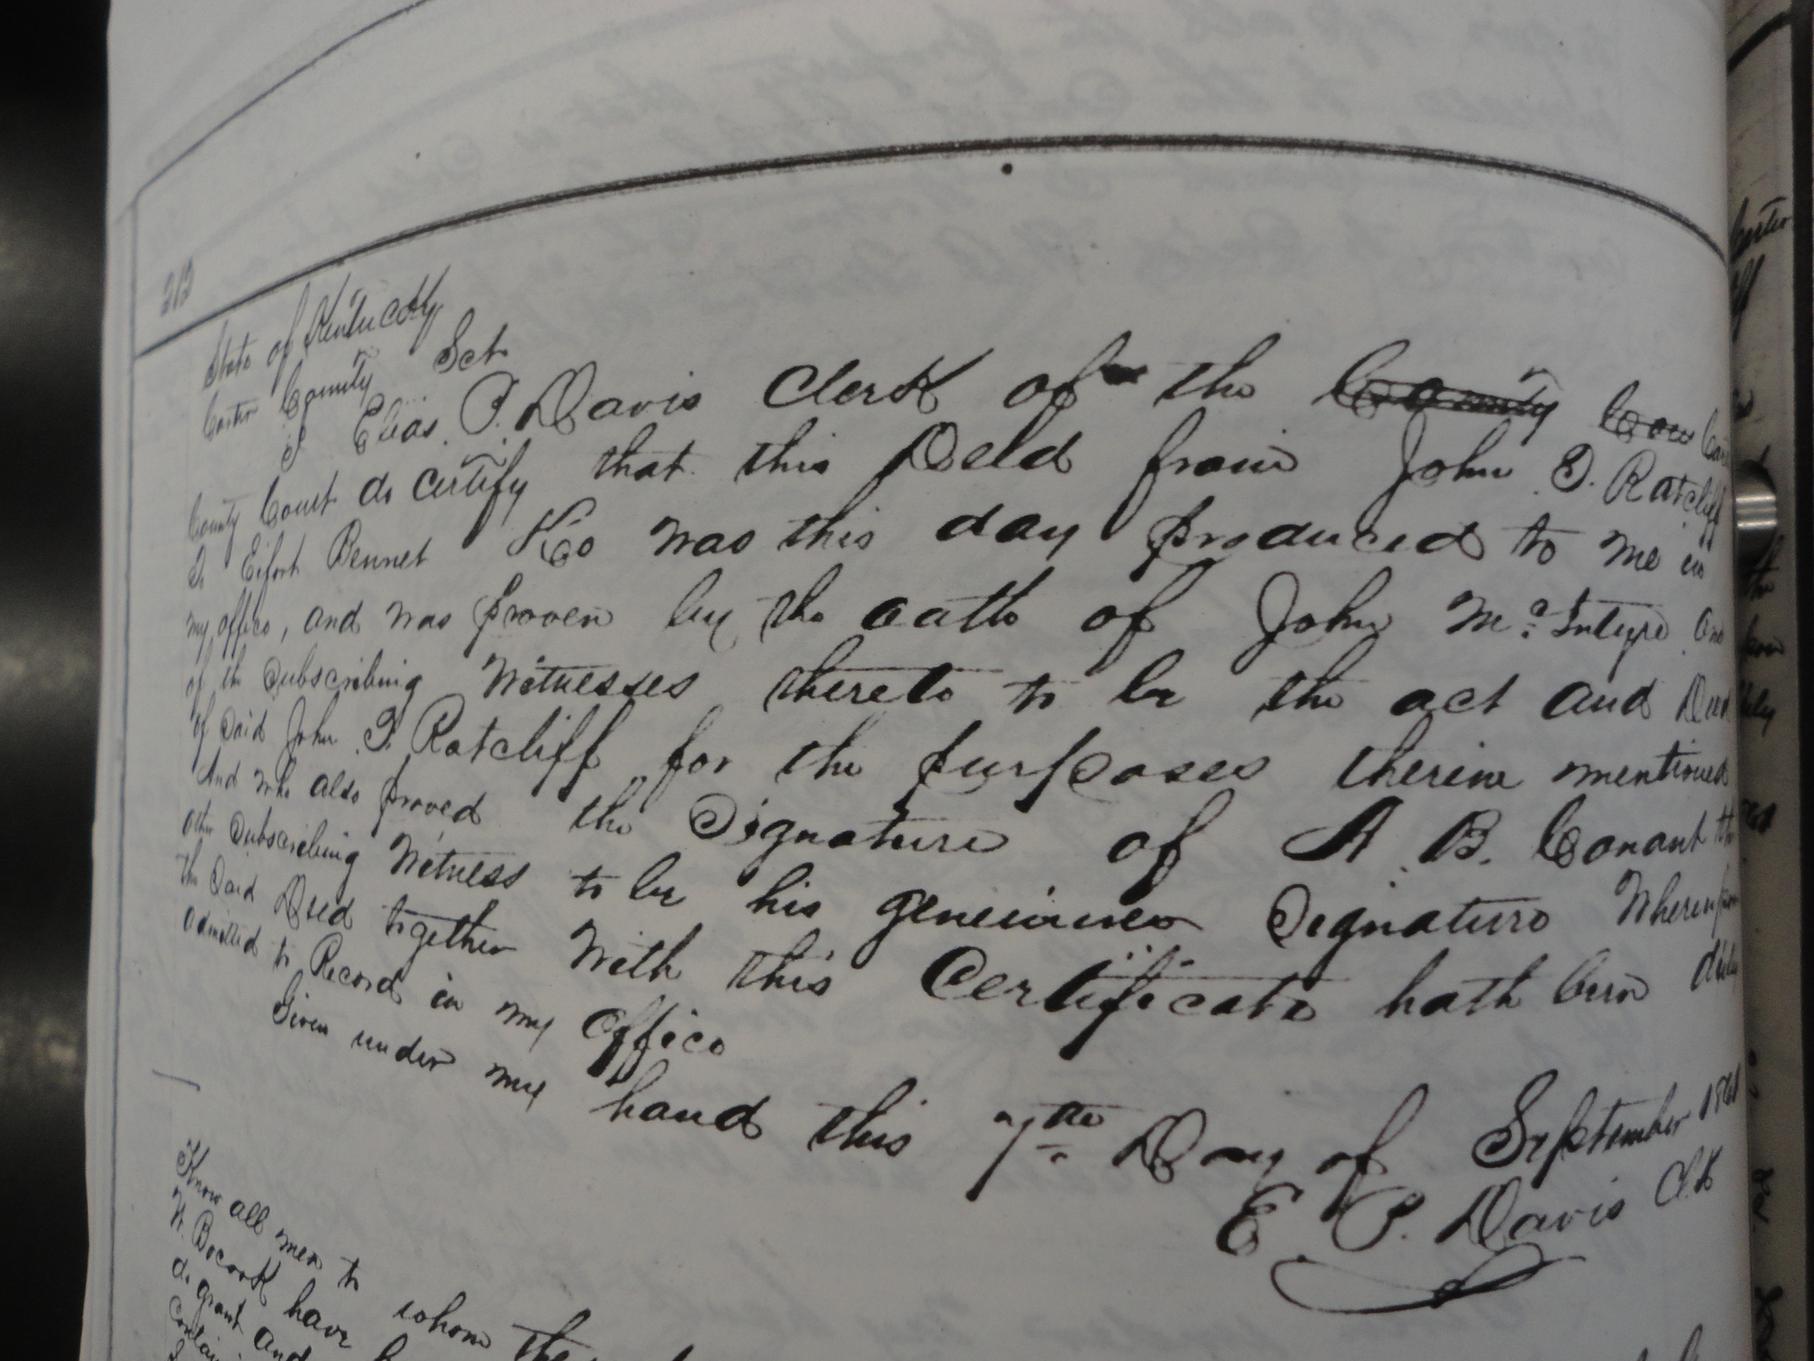 212
State of Kentucky
Carter County Sct
I Elias P. Davis Clerk of the County Cour Car
County Court do certify that this Deed from John T. Ratcliff
To Eifort Bennet & Co was this day produced to me in
my office, and was proven by the oath of John McIntyre one
of the Subscribing Witnesses thereto to be the act and Deed
of Said John T. Ratcliff for the purposes therein mentioned
And who also proved the Signature of A. B. Conant the
other Subscribing Witness to be his Signature Whereupon
the Said Deed together With this Certificate hath been
admitted to Record in my Office
Given under my hand this 7th Day of September
E. P. Davis Clk
Know all men to whom
W. Bocook have
do grant and